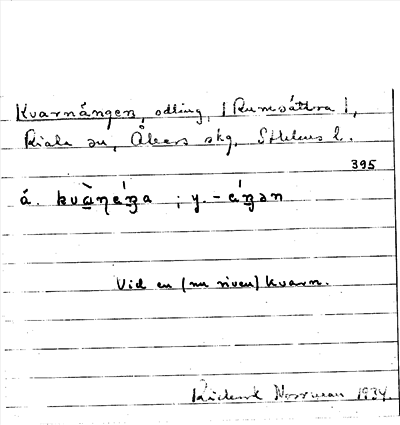 Kvarnängen, odling, (Rumsättra),
Riala sn, Åkers skg, Sthlms l.
395
ä. kvàɳéŋa ; y. - éŋən
Vid en (nu riven) kvarn.
Rickard Norrman 1934.